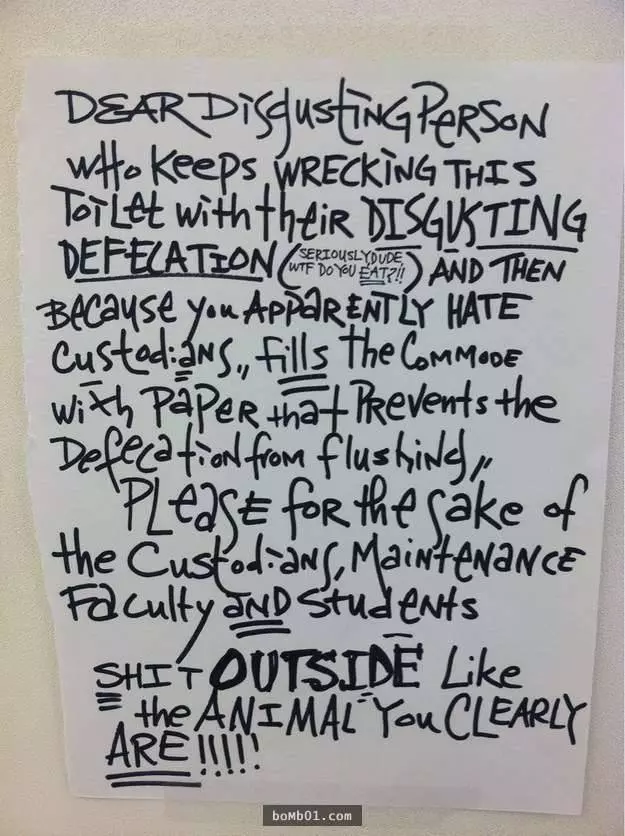 DEAR DISgUSTING PERSON
WHO KEEPS WRECKING THIS
TOILET with their DISGUSTING
DEFECATION (SERIOUSLY DUDE
WTF DO YOU EAT?!!) AND THEN
BECAUSE you APPARENTLY HATE
Custodians,, fills the COMMODE
with PAPER that Prevents the
Defecation from flushing,,
PLEASE for the sake of
the Custodians, MaintENANCE
Faculty AND Students
SHIT OUTSIDE Like
the ANIMAL You CLEARLY
ARE!!!!!
boMb01.com